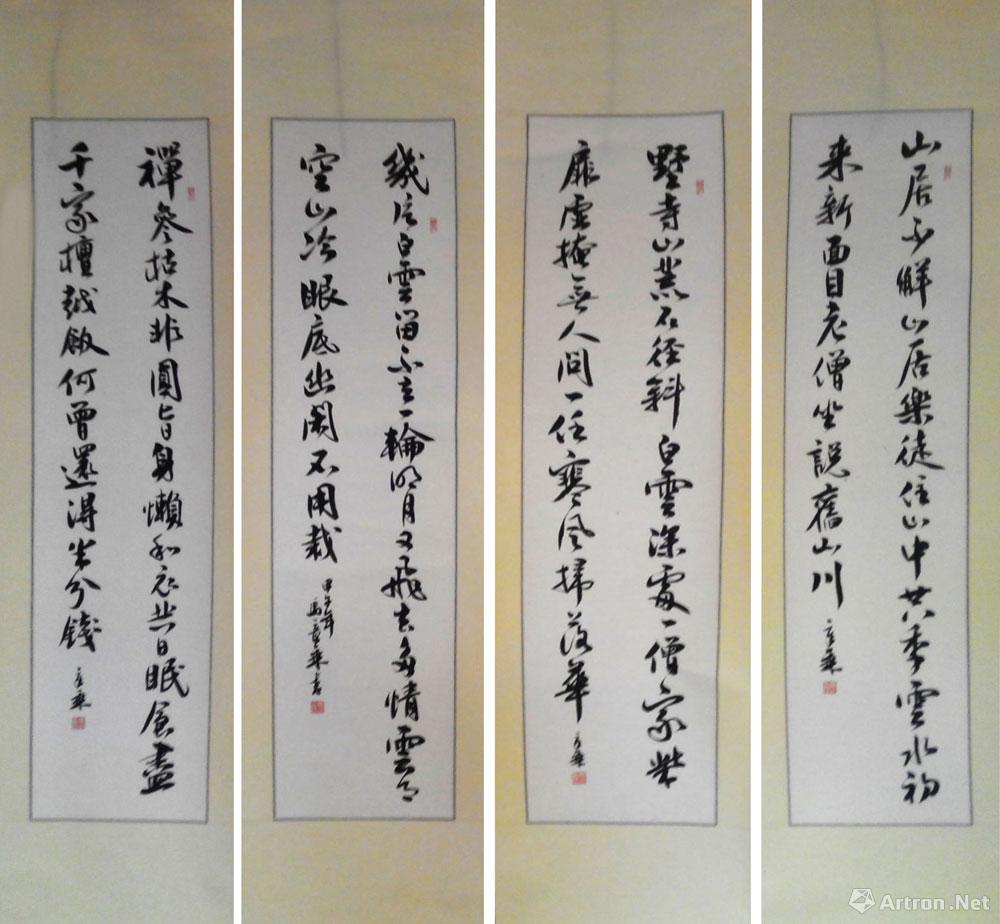 山居不解山居樂徒住山中廿八季雲水初
来新面目老僧坐説舊山川
野寺山荒石徑斜白雲深處一僧家柴
扉虚掩無人問一任寒風掃落華
幾片白雲留不立一輪明月又飛去多情雲月
空山冷眼底幽閑不用裁
甲午年
禪參枯木非圓旨身懶和衣共日眠食盡
千家檀越飯何曾還得半分錢
Artron.Net